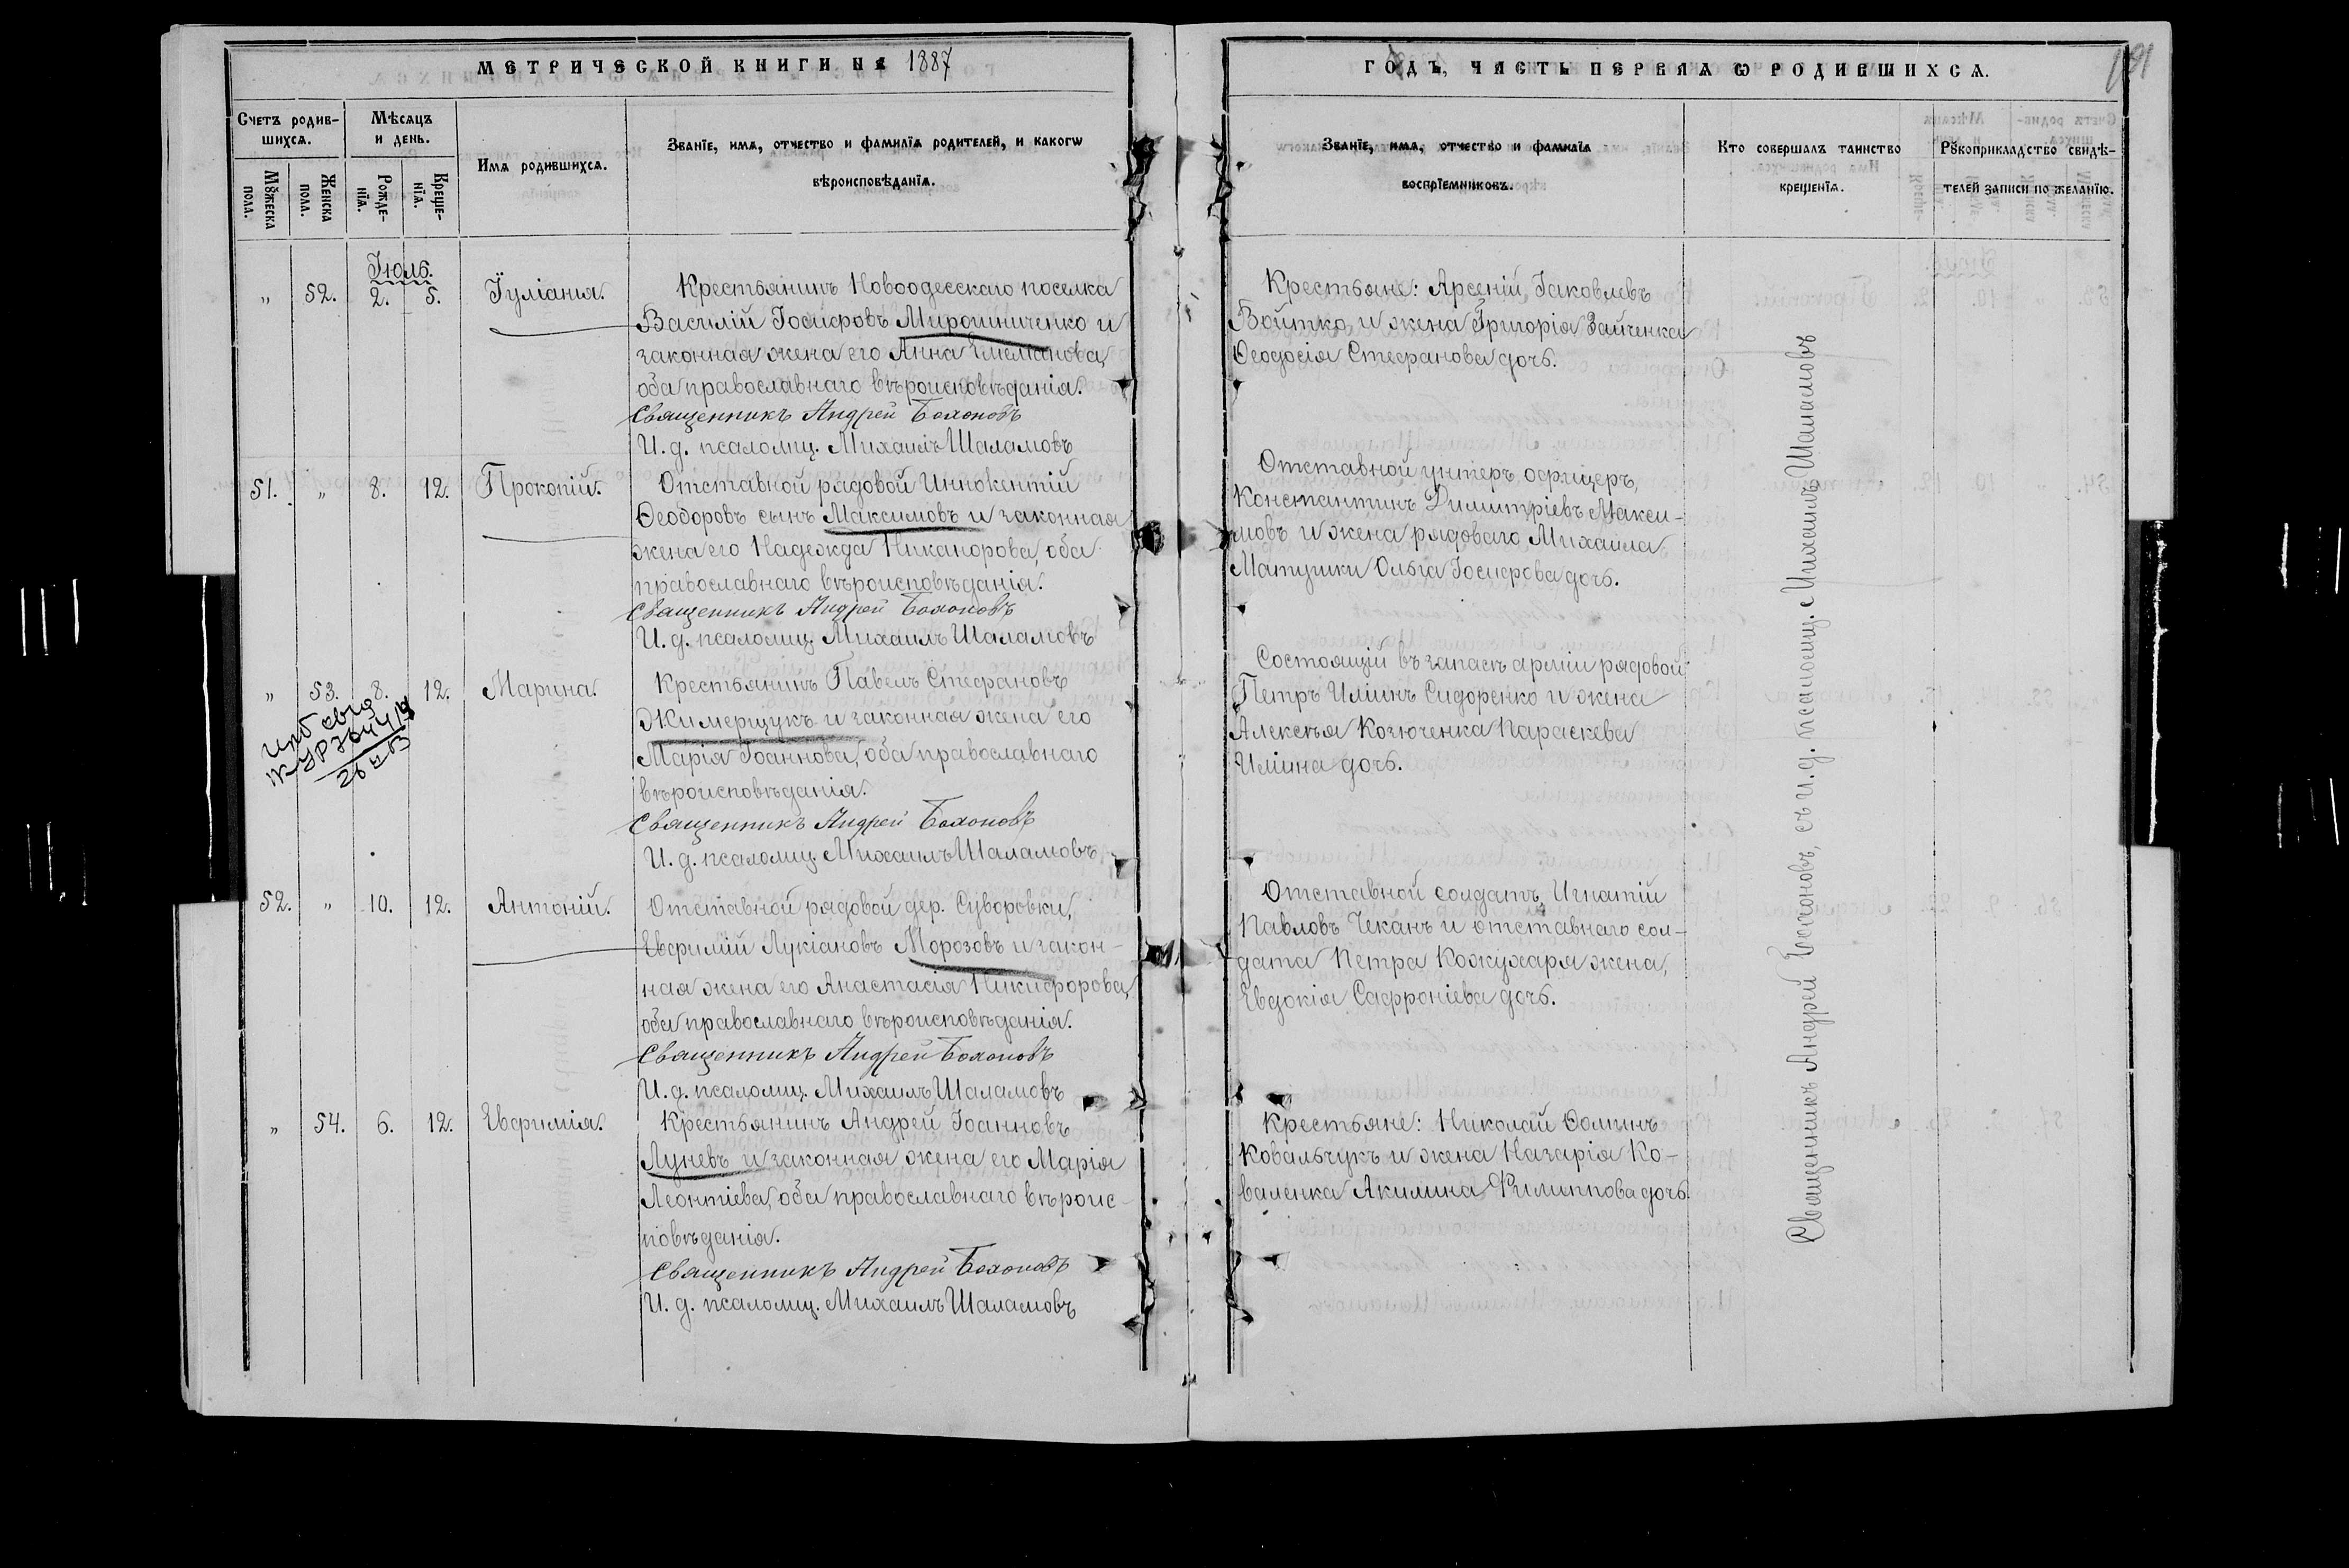 МЕТРИЧЕСКОЙ КНИГИ НА 1887
Счетъ родив-
шихся.
Мѣсяцъ
и день.
Имя родившихся.
Званїе, имя, отчество и фамилїя родителей, и какогѡ
вѣроисповѣданїя.
Мꙋжеска
пола.
Женска
пола.
Рожде-
нїя.
Креще-
нїя.
Іюль.
„ 52. 2. 5. Іуліанія.
Крестьянинъ Новоодесскаго поселка
Василій Іосифовъ Мирошниченко и
законная жена его Анна Емеліанова,
оба православнаго вѣроисповѣданія.
Священникъ Андрей Болоновъ
И. д. псаломщ. Михаилъ Шаламовъ
51. „ 8. 12. Прокопій.
Отставной рядовой Иннокентій
Ѳеодоровъ сынъ Максимовъ и законная
жена его Надежда Никанорова, оба
православнаго вѣроисповѣданія.
Священникъ Андрей Болоновъ
И. д. псаломщ. Михаилъ Шаламовъ
„ 53. 8. 12. Марина.
Крестьянинъ Павелъ Стефановъ
Жимерщукъ и законная жена его
Марія Іоаннова, оба православнаго
вѣроисповѣданія.
Священникъ Андрей Болоновъ
И. д. псаломщ. Михаилъ Шаламовъ
52. „ 10. 12. Антоній.
Отставной рядовой дер. Суворовки,
Евфимій Лукіановъ Морозовъ и закон-
ная жена его Анастасія Никифорова,
оба православнаго вѣроисповѣданія.
Священникъ Андрей Болоновъ
И. д. псаломщ. Михаилъ Шаламовъ
„ 54. 6. 12. Евфимія.
Крестьянинъ Андрей Іоанновъ
Луневъ и законная жена его Марія
Леонтіева, оба православнаго вѣроис-
повѣданія.
Священникъ Андрей Болоновъ
И. д. псаломщ. Михаилъ Шаламовъ
ГОДЪ, ЧАСТЬ ПЕРВАЯ Ѡ РОДИВШИХСЯ.
Званїе, имя, отчество и фамилїя
воспрїемниковъ.
Кто совершалъ таинство
крещенїя.
Рꙋкоприкладство свидѣ-
телей записи по желанїю.
Крестьяне: Арсеній Іаковлевъ
Войтко, и жена Григорія Зайченка
Ѳеодосія Стефанова дочь.
Отставной унтеръ офицеръ,
Константинъ Димитріевъ Макси-
мовъ и жена рядоваго Михаила
Матушки Ольга Іосифова дочь.
Состоящій въ запасѣ арміи рядовой
Петръ Иліинъ Сидоренко и жена
Алексѣя Козюченка Параскева
Иліина дочь.
Отставной солдатъ, Игнатій
Павловъ Чеканъ и отставнаго сол-
дата Петра Кожухаря жена,
Евдокія Сафроніева дочь.
Крестьяне: Николай Ѳоминъ
Ковальчукъ и жена Назарія Ко-
валенка Акилина Филиппова дочь.
Священникъ Андрей Болоновъ, съ и. д. псаломщ. Михаилъ Шаламовъ